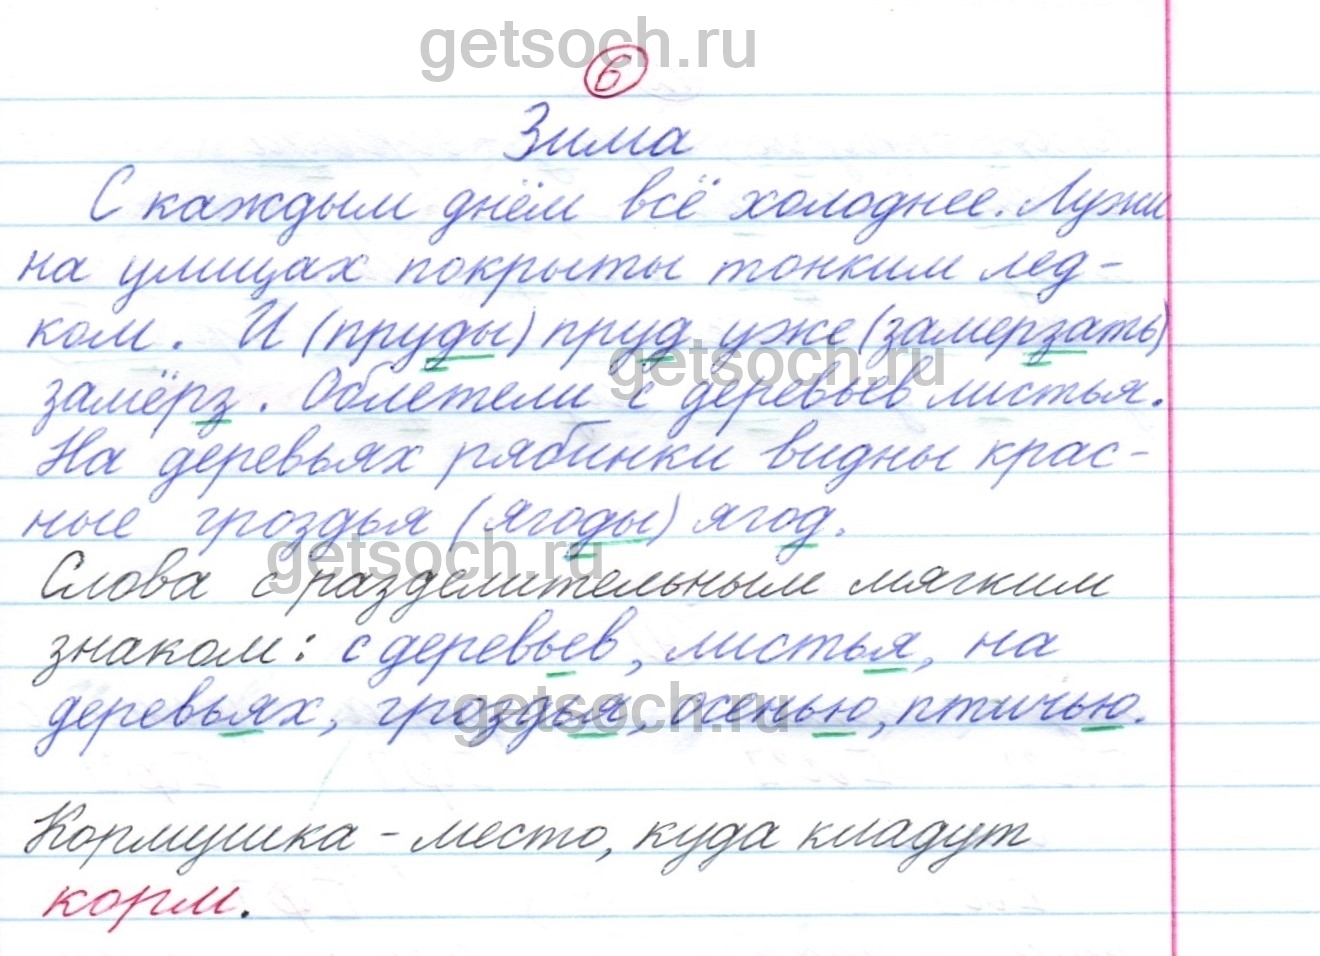 getsoch.ru
6
Зима
С каждым днём всё холоднее. Лужи
на улицах покрыты тонким лед-
ком. И (пруды) пруд уже (замерзать)
getsoch.ru
замёрз. Облетели с деревьев листья.
На деревьях рябинки видны крас-
ные гроздья (ягоды) ягод.
getsoch.ru
Слова с разделительным мягким
знаком: с деревьев, листья, на
getsoch.ru
деревьях, гроздья, осенью, птичью.
Кормушка - место, куда кладут
корм.